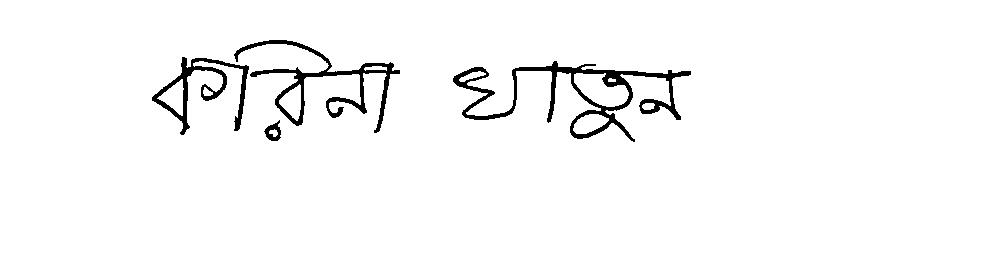 করিনা খাতুন